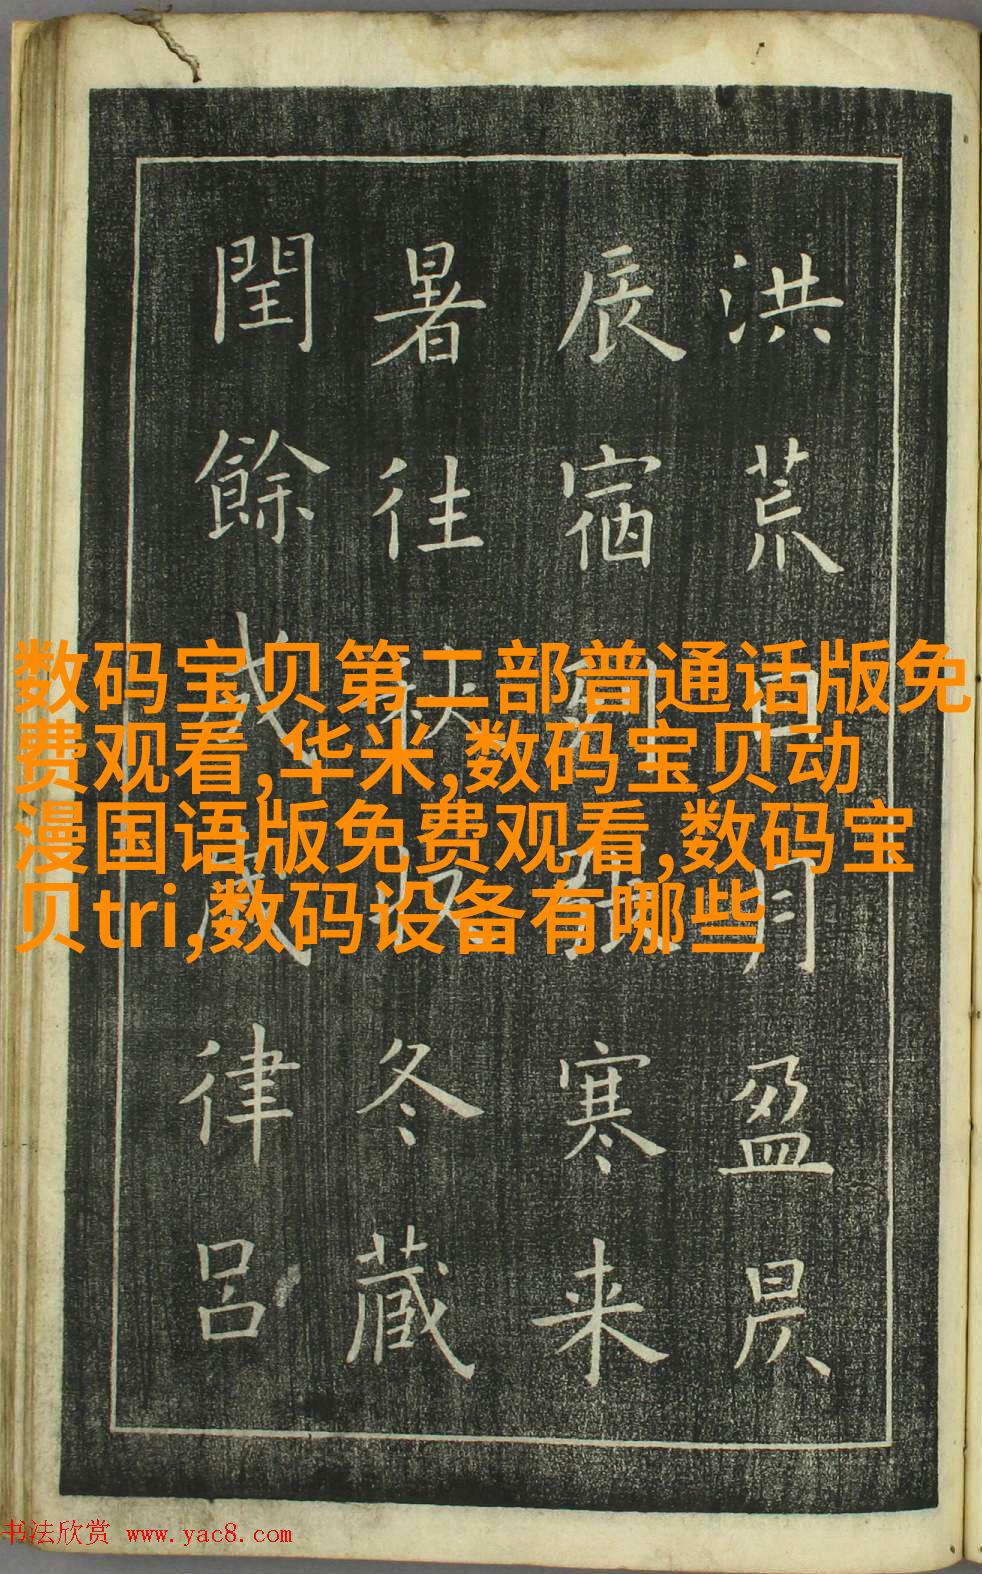 洪荒日月盈昃
辰宿列張寒来
暑往秋收冬藏
閏餘成歲律吕
数码宝贝第二部普通话版免
费观看,华米,数码宝贝动
漫国语版免费观看,数码宝
贝tri,数码设备有哪些
书法欣赏 www.yac8.com